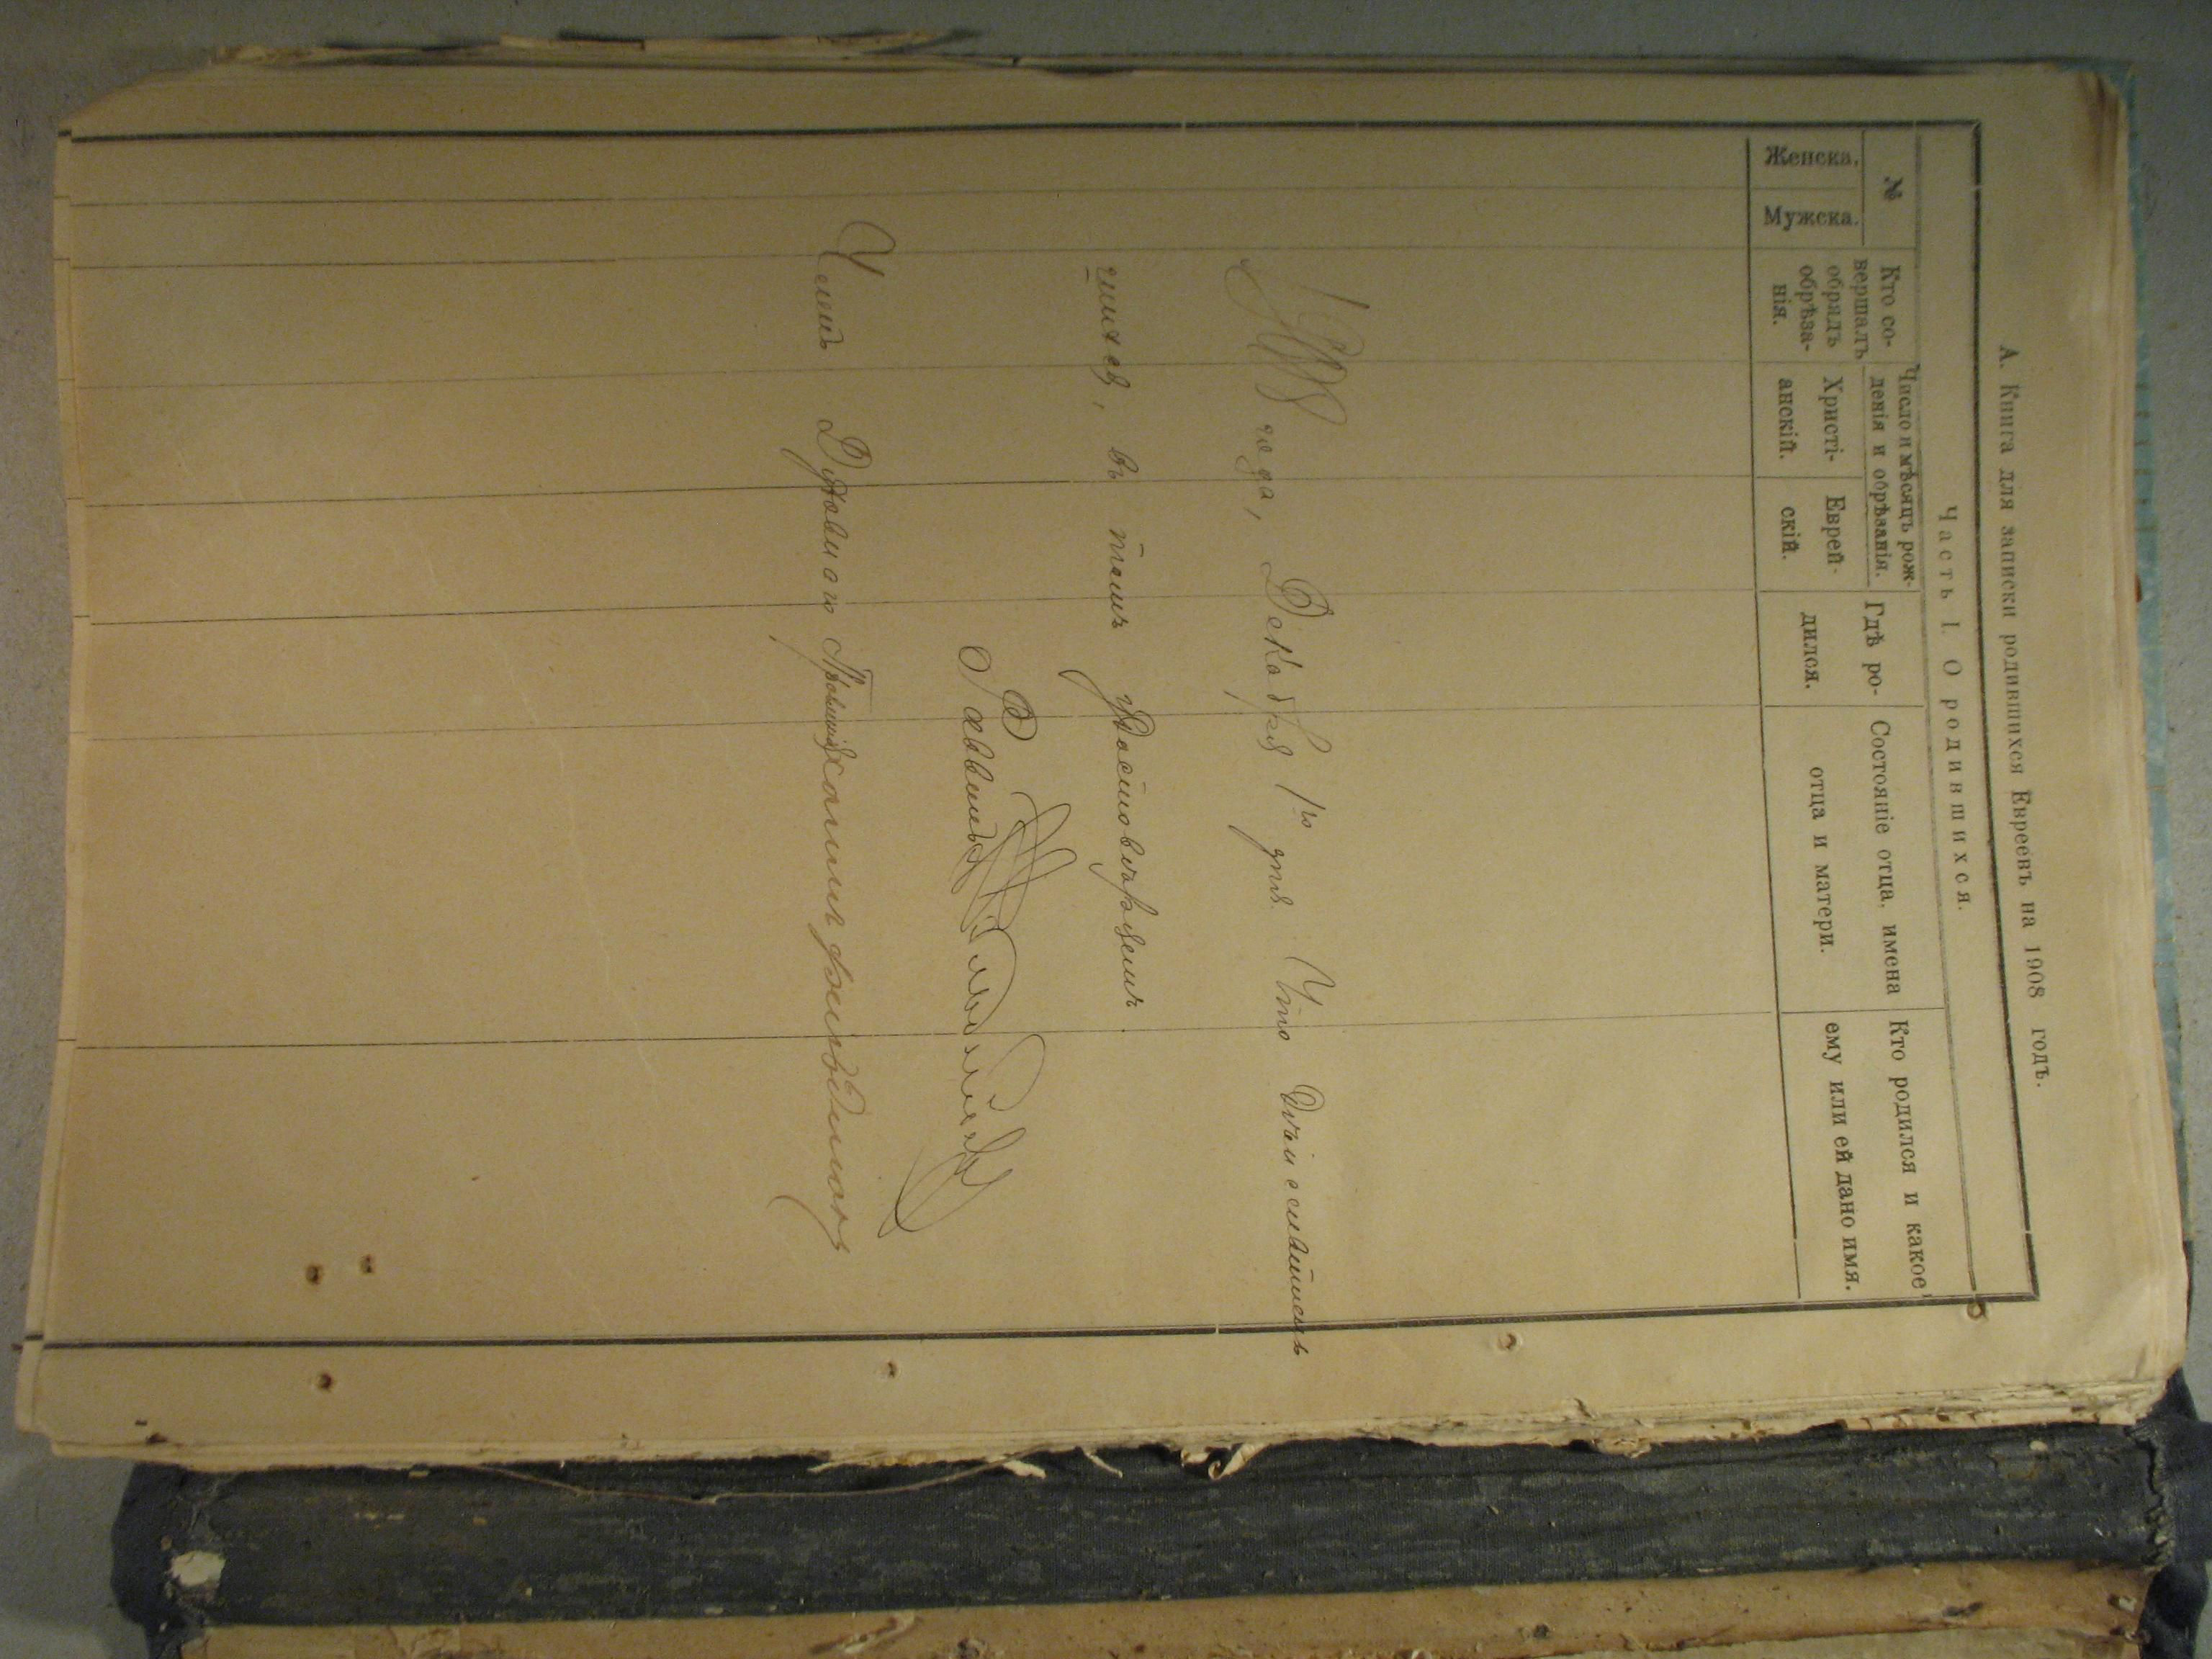 А. Книга для записки родившихся Евреевъ на 1908 годъ.
Часть I. О родившихся.
№
Женска.
Мужска.
Кто со-
вершалъ
обрядъ
обрѣза-
нія.
Число и мѣсяцъ рож-
денія и обрѣзанія.
Христі-
анскій.
Еврей-
скій.
Гдѣ ро-
дился.
Состояніе отца, имена
отца и матери.
Кто родился и какое
ему или ей дано имя.
1908 года, Декабря 1го дня Что
въ томъ удостовѣряемъ.
Раввинъ
Членъ Духовнаго Правленія